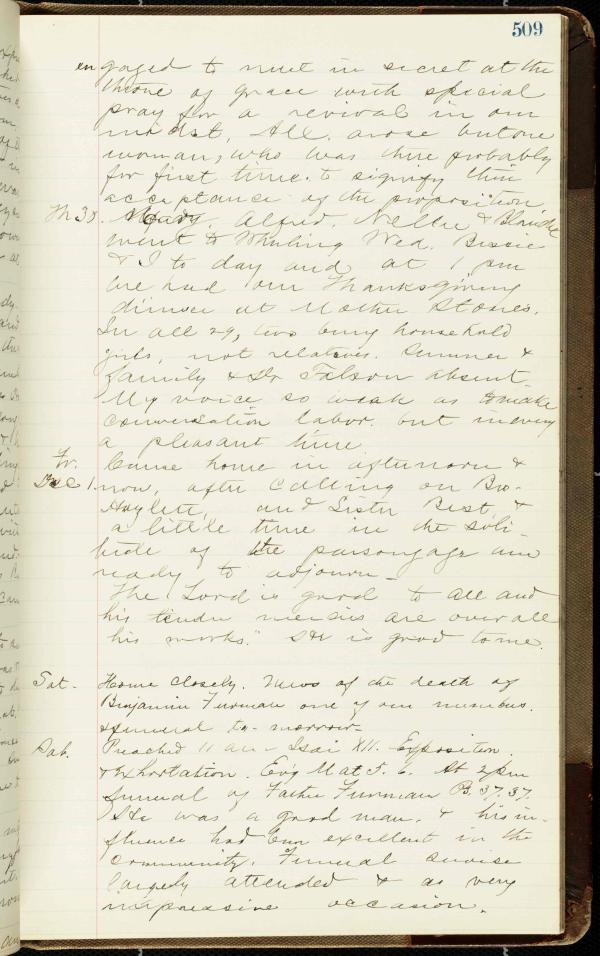 509
engaged to meet in secret at the
throne of grace with special
pray for a revival in our
midst. All arose but one
woman, who was there probably
for first time. to signify their
acceptance of the proposition
Th 30. Mary, Alfred, Nellie & Blanche
went to Wheeling Wed. Bessie
& I to day and at 1 pm
we had our Thanksgiving
dinner at Mother Stones.
In all 29, two being household
girls, not relatives. Sumner &
family & Dr absent.
My voice so weak as to make
conversation labor. but in every
a pleasant time
Fr. Came home in afternoon &
Dec 1. now, after calling on Bro.
and Sister Best, &
a little time in the soli-
tude of the parsonage am
ready to adjourn -
"The Lord is good to all and
his tender mercies are over all
his works." He is good to me.
Sat. Home closely. News of the death of
Benjamin Furman one of our members.
& funeral to-morrow -
Sab. Preached 11 am - Isai XII. Expositon.
& Exhortation. Ev'g Mat 5. 6. At 2 pm
funeral of Father Furman Ps. 37. 37.
He was a good man. & his in-
fluence had been excellent in the
community. Funeral servise
largely attended & as very
impressive occasion.